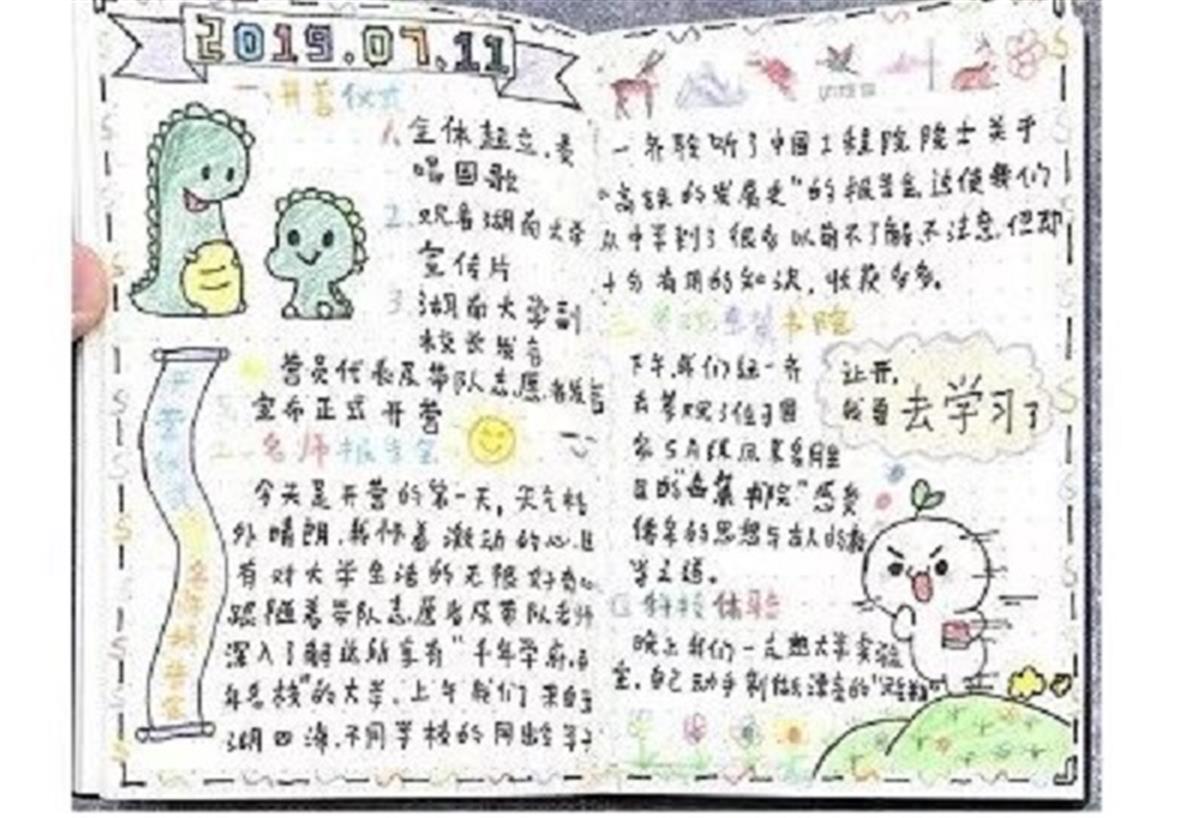 2019.07.11
一、开营仪式
1. 全体起立，奏
唱国歌
2. 观看湖南大学
宣传片
3. 湖南大学副
校长发言
营员代表及带队志愿者发言
宣布正式开营
二、名师报告会
今天是开营的第一天，天气格
外晴朗，我怀着激动的心
有对大学生活的无限好奇心
跟随着带队志愿者及带队老师
深入了解这所享有“千年学府，百
年名校”的大学。上午我们
湖四海，不同学校的同龄
开营仪式
名师报告会
一齐聆听了中国工程院院士关于
“高铁的发展史”的报告会，这使我们
从中学到了很多以前不了解、不注意，但却
十分有用的知识，收获多多。
三、参观岳麓书院
下午，我们统一齐
去参观了位于国
家5A级风景名胜
区的“岳麓书院”感受
传承的思想与古人的教
学之道。
让开，
我要去学习了
四、科技体验
晚上我们一起去大学实验
室，自己动手制做漂亮的